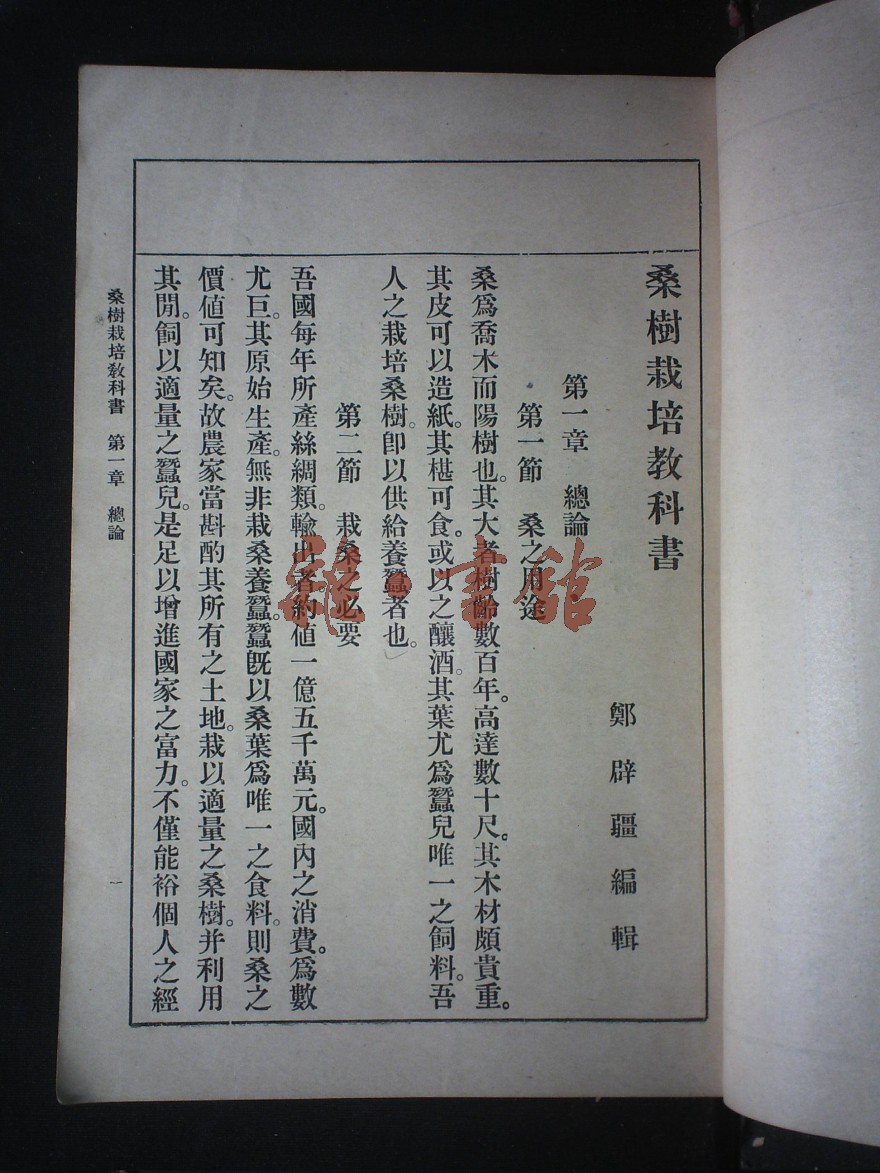 桑樹栽培教科書
鄭辟疆編輯
第一章　總論
第一節　桑之用途
桑爲喬木而陽樹也。其大者樹齡數百年。高達數十尺。其木材頗貴重。
其皮可以造紙。其椹可食。或以之釀酒。其葉尤爲蠶兒唯一之飼料。吾
人之栽培桑樹。卽以供給養蠶者也。
第二節　栽桑之必要
吾國每年所產絲綢類。輸出者約値一億五千萬元。國內之消費。爲數
尤巨。其原始生產。無非栽桑養蠶。蠶旣以桑葉爲唯一之食料。則桑之
價値可知矣。故農家當斟酌其所有之土地。栽以適量之桑樹。并利用
其閒。飼以適量之蠶兒。是足以增進國家之富力。不僅能裕個人之經
桑樹栽培教科書　第一章　總論
一
龍書館